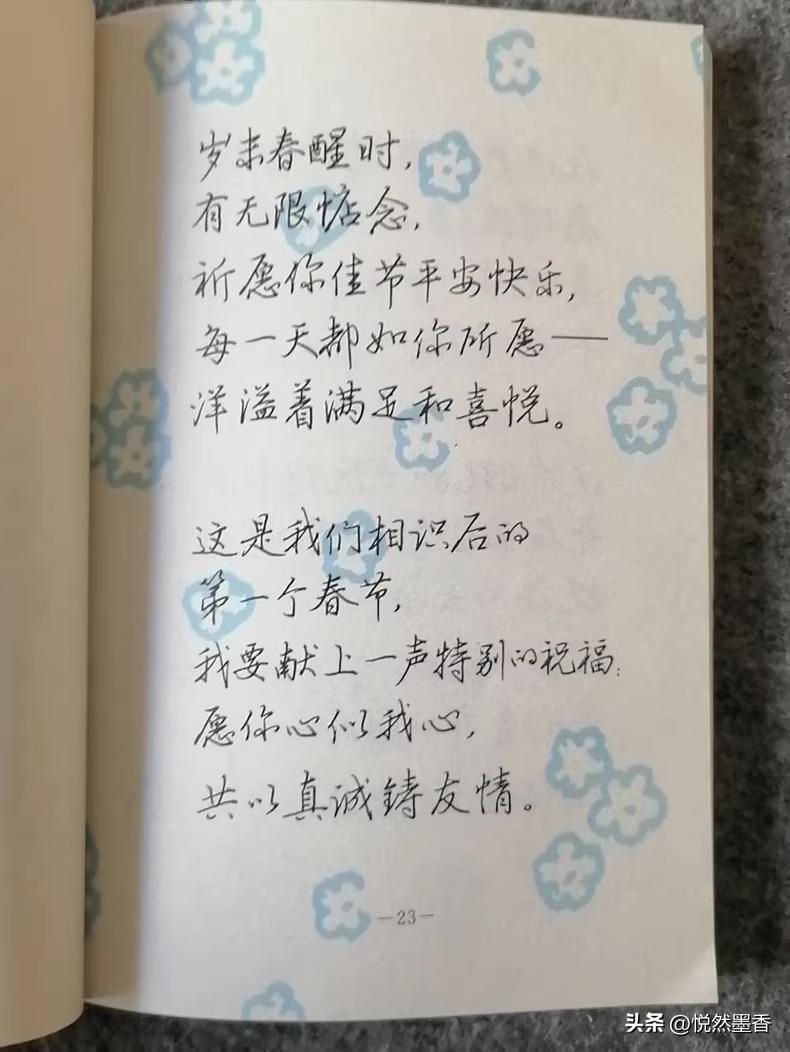 岁末春醒时,
有无限惦念,
祈愿你佳节平安快乐,
每一天都如你所愿——
洋溢着满足和喜悦。
这是我们相识后的
第一个春节,
我要献上一声特别的祝福:
愿你心似我心,
共以真诚铸友情。
—23—
头条 @悦然墨香